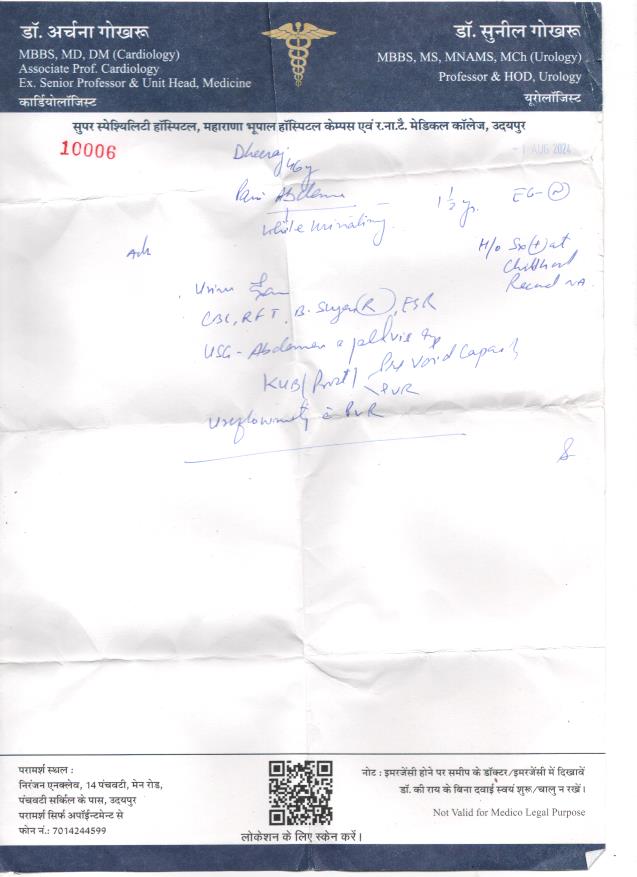 डॉ. अर्चना गोखरू
MBBS, MD, DM (Cardiology)
Associate Prof. Cardiology
Ex. Senior Professor & Unit Head, Medicine
कार्डियोलॉजिस्ट
डॉ. सुनील गोखरू
MBBS, MS, MNAMS, MCh (Urology)
Professor & HOD, Urology
यूरोलॉजिस्ट
सुपर स्पेश्यिलिटी हॉस्पिटल, महाराणा भूपाल हॉस्पिटल केम्पस एवं र.ना.टै. मेडिकल कॉलेज, उदयपुर
10006
- 1 AUG 2024
Dheeraj
46y
Pain Abdomen - 1 1/2 yr.
while urinating
H/o Sx (+) at
Childhood
Record NA
Adv
Urine
CBC, RFT, B. Sugar (R), ESR
USG - Abdomen & pelvis
KUB (Prost) Pre Void Capacity
PVR
Uroflowmetry c̄ PVR
परामर्श स्थल :
निरंजन एनक्लेव, 14 पंचवटी, मेन रोड,
पंचवटी सर्किल के पास, उदयपुर
परामर्श सिर्फ अपॉईन्टमेन्ट से
फोन नं.: 7014244599
लोकेशन के लिए स्केन करें।
नोट : इमरजेंसी होने पर समीप के डॉक्टर/इमरजेंसी में दिखावें
डॉ. की राय के बिना दवाई स्वयं शुरू/चालु न रखें।
Not Valid for Medico Legal Purpose